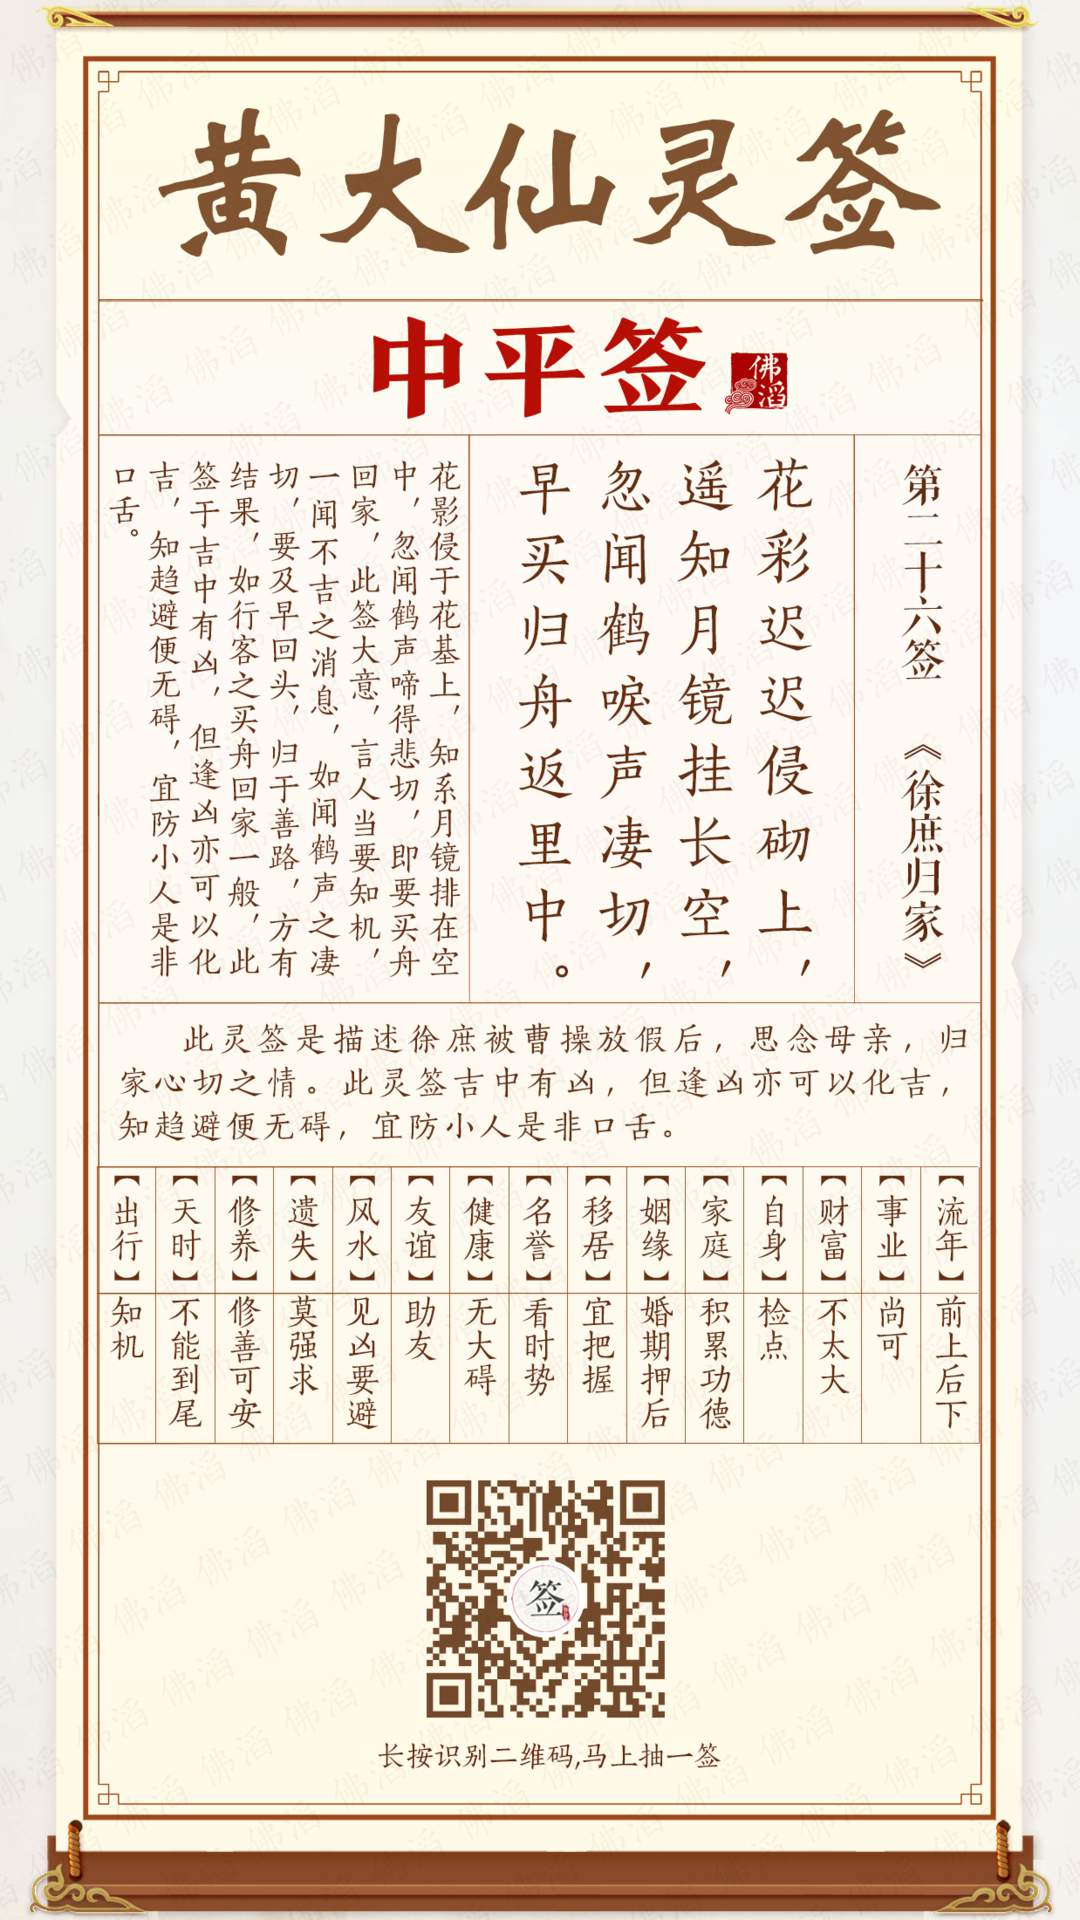 黄大仙灵签
中平签
佛滔
第二十六签 《徐庶归家》
花彩迟迟侵砌上，
遥知月镜挂长空，
忽闻鹤唳声凄切，
早买归舟返里中。
花影侵于花基上，知系月镜排在空
中，忽闻鹤声啼得悲切，即要买舟
回家，此签大意，言人当要知机，
一闻不吉之消息，如闻鹤声之凄
切，要及早回头，归于善路，方有
结果，如行客之买舟回家一般，此
签于吉中有凶，但逢凶亦可以化
吉，知趋避便无碍，宜防小人是非
口舌。
此灵签是描述徐庶被曹操放假后，思念母亲，归
家心切之情。此灵签吉中有凶，但逢凶亦可以化吉，
知趋避便无碍，宜防小人是非口舌。
【流年】前上后下
【事业】尚可
【财富】不太大
【自身】检点
【家庭】积累功德
【姻缘】婚期押后
【移居】宜把握
【名誉】看时势
【健康】无大碍
【友谊】助友
【风水】见凶要避
【遗失】莫强求
【修养】修善可安
【天时】不能到尾
【出行】知机
签
长按识别二维码,马上抽一签